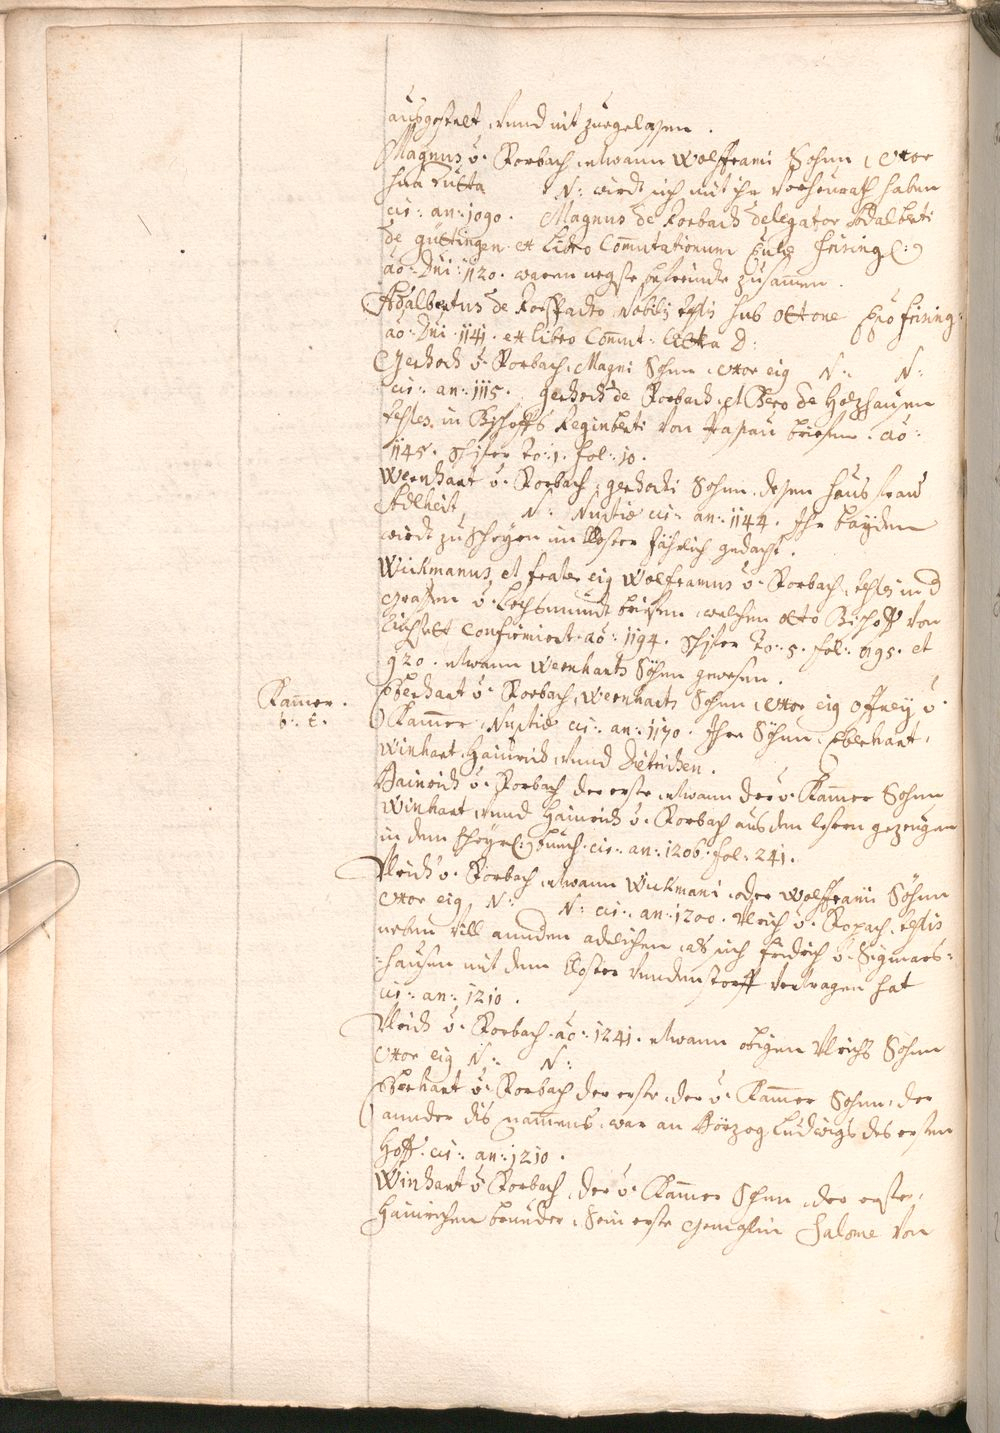 ausgestalt, unnd nit zuegelassen.
Magnus v. Rorbach, etwann Wolfframi Sohnn, uxor
sua Jutta N: wirdt sich mit ihr verheurath haben
cir: an: 1090. Magnus de Rorbach delegator Adalberti
de güttingen. ex Libro Comutationum Eccle Frising(:)
ao: Dni: 1120. waren negste befreundte zusamen.
Adalbertus de Rorbach nobilis testis sub Ottone Epo Frising:
ao: Dni 1141. ex Libro Comut: littera D:
Gerhoch v. Rorbach, Magni Sohn, uxor eig N: N:
cir: an: 1115. gerhoch de Rorbach, et Bero de Holzhausen
testes, in Bischoffs Reginberti von Passau briefen. ao:
1145. Hister To: 1. fol: 10.
Wernhart v. Rorbach, gerhochi Sohn, dessen hausfraw
Adlheit, N: Nuptiæ cir: an: 1144. Ihr bayden
wirdt zu Scheyrn im Closter Jährlich gedacht.
Wickmanus, et frater eig Wolframus v. Rorbach, testes in d
graffen v. Lechsmündt briefen, welchen Otto Bischoff von
Eichstett confirmiert. ao: 1194. Hister To: 5. fol: 895. et
920. etwann Wernharts Söhn gewesen.
Kamer.
b: t.
Eberhart v. Rorbach, Wernharts Sohnn, uxor eig Offney v.
Kamer, Nuptiæ cir: an: 1170. Ihre Söhnn, Eberhart,
Winhart, Hainrich, unnd Dietrichen.
Hainrich v. Rorbach der erste, etwann der v. Kamer Sohnn
Winhart, unnd Hainrich v. Rorbach aus den lesern gezeugen
in dem Scheyr(:) buuch. cir: an: 1206. fol: 241.
Ulrich v. Rorbach, etwann Wickmani, oder Wolfframi Söhnn
uxor eig, N: N: cir: an: 1200. Ulrich v. Ropach, testis
neben vill anndern adelichen, als sich Fridrich v. Sigmars=
=hausen mit dem Closter Undenstorff vertragen hat
cir: an: 1210.
Ulrich v. Rorbach. ao: 1241. etwann obigen Ulrichs Sohnn
uxor eig N: N:
Eberhart v. Rorbach der erste, der v. Kamer Sohnn, der
annder dis namens, war an Hörzog Ludwigs des ersten
Hoff. cir: an: 1210.
Winhart v. Rorbach, der v. Kamer Sohn, der erste,
Hainrichen brueder, Sein erste Gemahlin Salome von